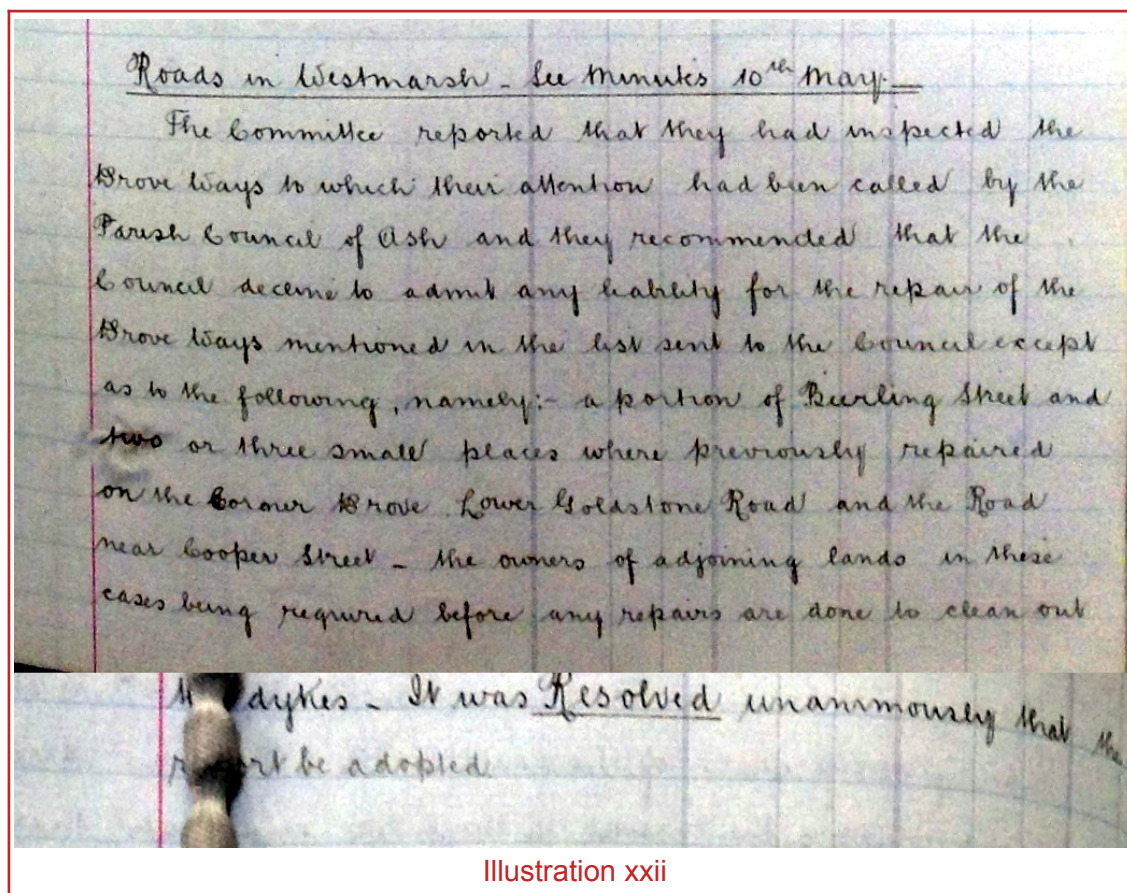 Roads in Westmarsh - See Minutes 10th May. -
The Committee reported that they had inspected the
Drove Ways to which their attention had been called by the
Parish Council of Ash and they recommended that the
Council decline to admit any liability for the repair of the
Drove Ways mentioned in the list sent to the Council except
as to the following, namely:- a portion of Burling Street and
two or three small places where previously repaired
on the Corner Drove Lower Goldstone Road and the Road
near Cooper Street - the owners of adjoining lands in these
cases being required before any repairs are done to clean out
dykes - It was Resolved unanimously that the
be adopted
Illustration xxii